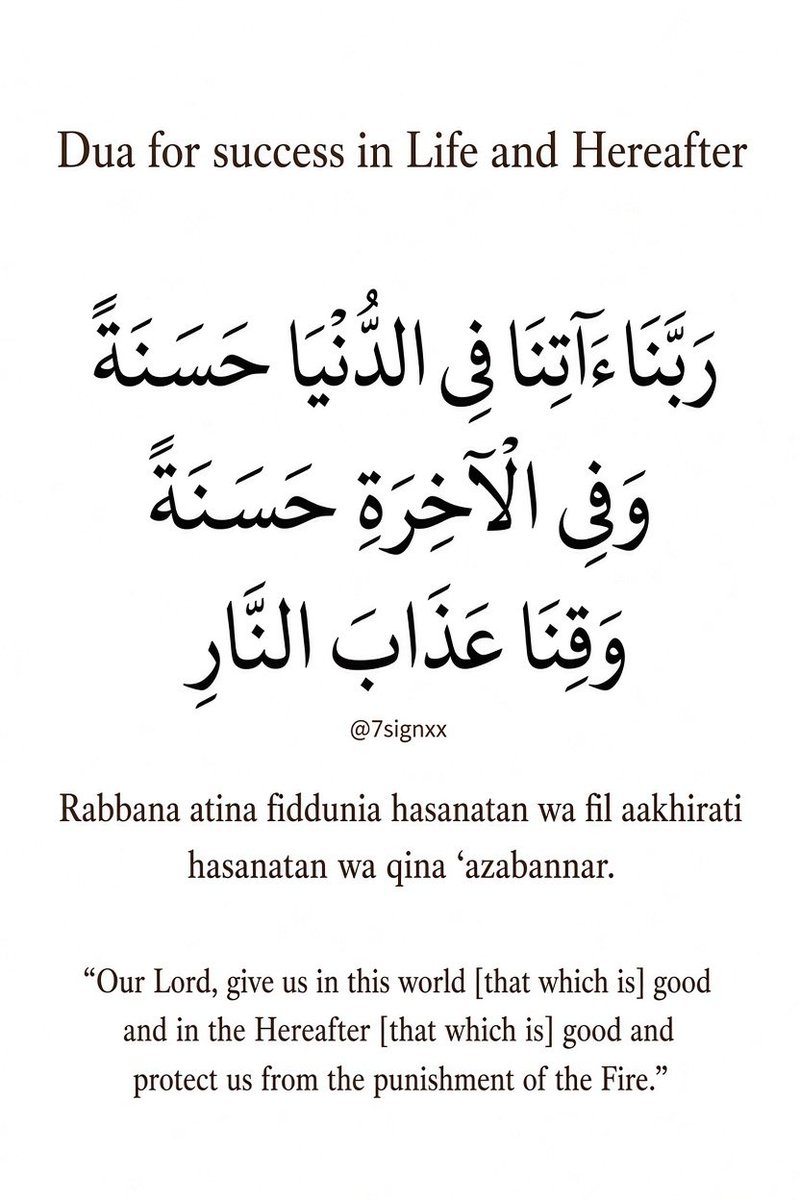 Dua for success in Life and Hereafter
رَبَّنَا ءَآتِنَا فِى الدُّنْيَا حَسَنَةً
وَفِى الْآخِرَةِ حَسَنَةً
وَقِنَا عَذَابَ النَّارِ
@7signxx
Rabbana atina fiddunia hasanatan wa fil aakhirati
hasanatan wa qina ‘azabannar.
“Our Lord, give us in this world [that which is] good
and in the Hereafter [that which is] good and
protect us from the punishment of the Fire.”